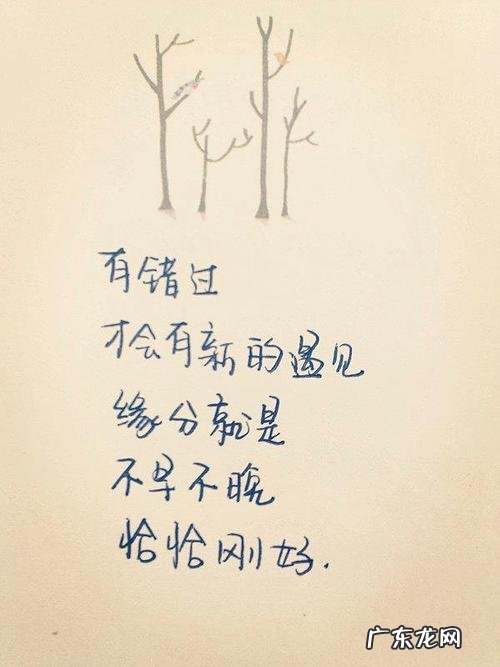 有错过
才会有新的遇见
缘分就是
不早不晚
恰恰刚好.
广东龙网